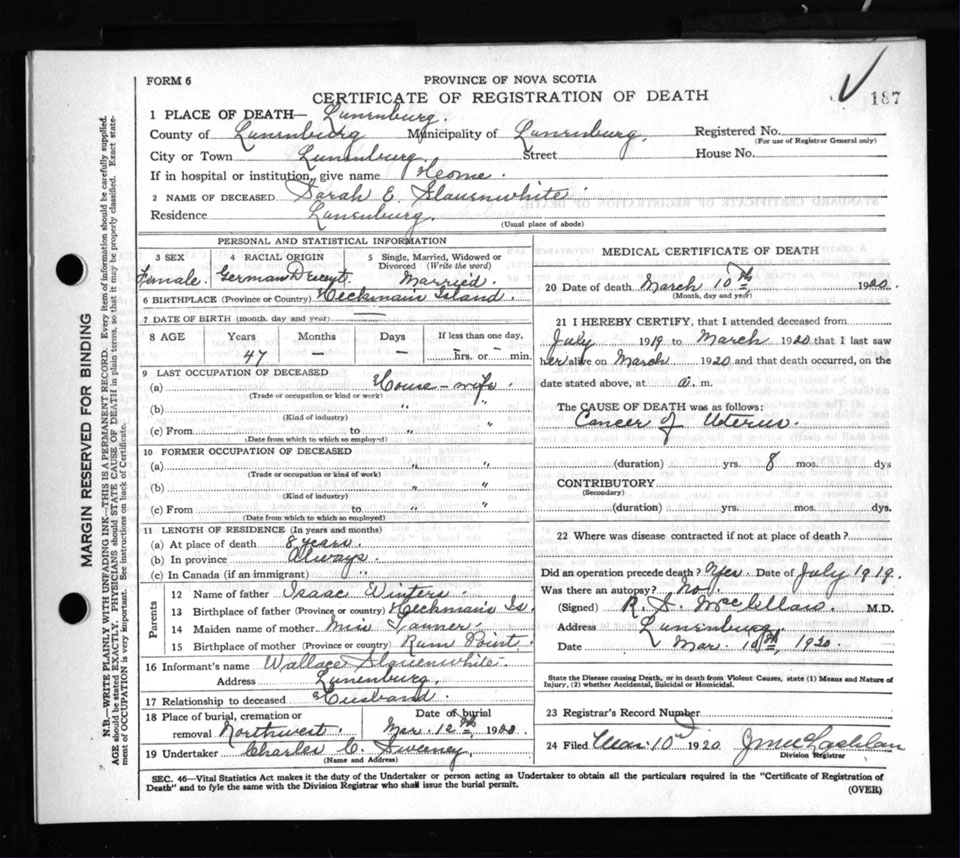 187
FORM 6
PROVINCE OF NOVA SCOTIA
CERTIFICATE OF REGISTRATION OF DEATH
1 PLACE OF DEATH— Lunenburg.
County of Lunenburg Municipality of Lunenburg, Registered No.
(For use of Registrar General only)
City or Town Lunenburg. Street House No.
If in hospital or institution, give name Home.
2 NAME OF DECEASED Sarah E. Slauenwhite
Residence Lunenburg.
(Usual place of abode)
PERSONAL AND STATISTICAL INFORMATION
3 SEX 4 RACIAL ORIGIN 5 Single, Married, Widowed or Divorced (Write the word)
Female. German Married.
6 BIRTHPLACE (Province or Country) Heckmans Island.
7 DATE OF BIRTH (month, day and year) —
8 AGE Years Months Days If less than one day,
47 — — — hrs. or — min.
9 LAST OCCUPATION OF DECEASED
(a) House-wife.
(Trade or occupation or kind or work)
(b) " "
(Kind of industry)
(c) From to " "
(Date from which to which so employed)
10 FORMER OCCUPATION OF DECEASED
(a) " "
(Trade or occupation or kind of work)
(b) " "
(Kind of industry)
(c) From to " "
(Date from which to which so employed)
11 LENGTH OF RESIDENCE (In years and months)
(a) At place of death 8 years.
(b) In province Always.
(c) In Canada (if an immigrant) "
Parents
12 Name of father Isaac Winters
13 Birthplace of father (Province or country) Heckmans Is.
14 Maiden name of mother Miss Tanner.
15 Birthplace of mother (Province or country) Rum Point.
16 Informant's name Wallace Slauenwhite.
Address Lunenburg.
17 Relationship to deceased Husband.
18 Place of burial, cremation or removal Northwest Date of burial Mar. 12th, 1920.
19 Undertaker Charles C. Sweeney
(Name and Address)
MEDICAL CERTIFICATE OF DEATH
20 Date of death March 10th 1920.
(Month, day and year)
21 I HEREBY CERTIFY, that I attended deceased from
July 1919 to March 1920 that I last saw
her alive on March 1920 and that death occurred, on the
date stated above, at a. m.
The CAUSE OF DEATH was as follows:
Cancer of Uterus.
(duration) yrs. 8 mos. dys
CONTRIBUTORY
(Secondary)
(duration) yrs. mos. dys.
22 Where was disease contracted if not at place of death?
Did an operation precede death? Yes. Date of July 1919.
Was there an autopsy? No.
(Signed) M.D.
Address Lunenburg.
Date Mar. 10th, 1920.
State the Disease causing Death, or in death from Violent Causes, state (1) Means and Nature of
Injury, (2) whether Accidental, Suicidal or Homicidal.
23 Registrar's Record Number
24 Filed Mar. 10th 1920
Division Registrar
SEC. 46—Vital Statistics Act makes it the duty of the Undertaker or person acting as Undertaker to obtain all the particulars required in the "Certificate of Registration of
Death" and to fyle the same with the Division Registrar who shall issue the burial permit.
(OVER)
MARGIN RESERVED FOR BINDING
N.B.—WRITE PLAINLY WITH UNFADING INK—THIS IS A PERMANENT RECORD. Every item of information should be carefully supplied.
AGE should be stated EXACTLY. PHYSICIANS should STATE CAUSE OF DEATH in plain terms, so that it may be properly classified. Exact state-
ment of OCCUPATION is very important. See instructions on back of Certificate.